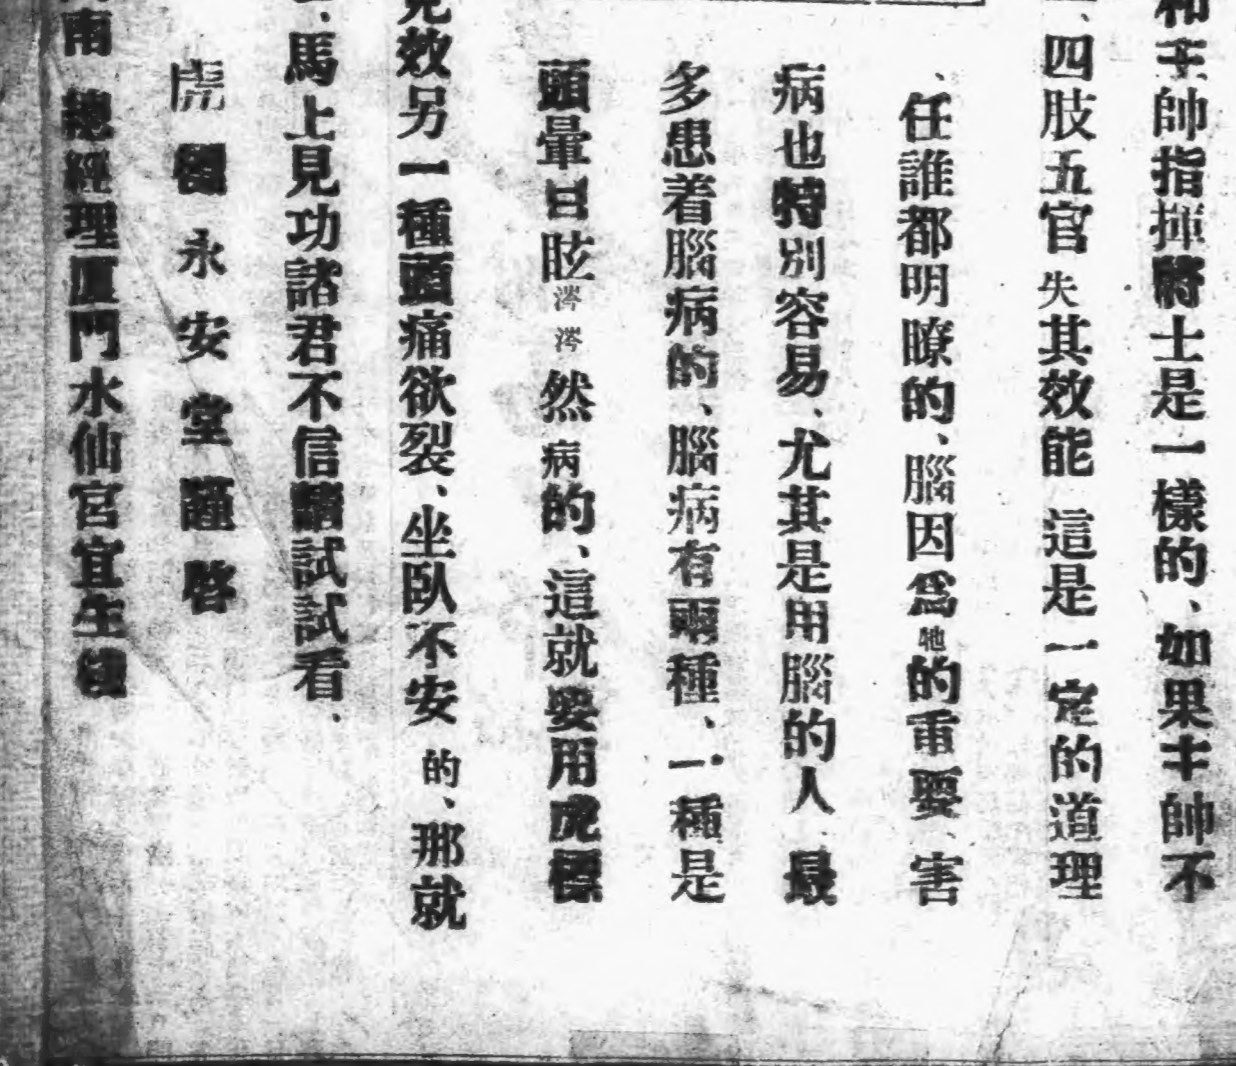 和主帥指揮將士是一樣的、如果主帥不
、四肢五官失其效能 這是一定的道理
、任誰都明瞭的、腦因爲牠的重要、害
病也特別容易、尤其是用腦的人、最
多患着腦病的、腦病有兩種、一種是
頭暈目眩涔涔然病的、這就要用虎標
見效另一種頭痛欲裂、坐臥不安的、那就
、馬上見功諸君不信請試試看、
虎標永安堂謹啓
南 總經理厦門水仙宮宜生